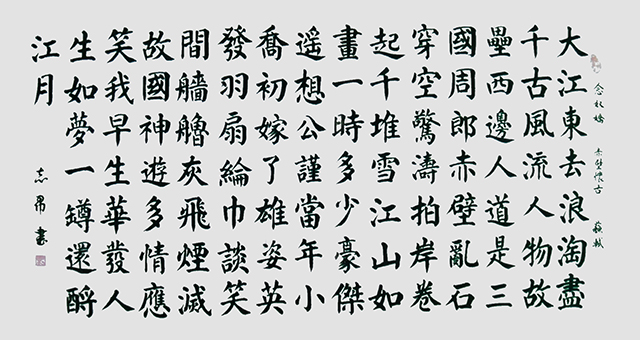 念奴嬌 赤壁懷古 蘇軾
大江東去浪淘盡
千古風流人物故
壘西邊人道是三
國周郎赤壁亂石
穿空驚濤拍岸卷
起千堆雪江山如
畫一時多少豪傑
遥想公謹當年小
喬初嫁了雄姿英
發羽扇綸巾談笑
間艢艣灰飛煙滅
故國神遊多情應
笑我早生華發人
生如夢一鐏還酹
江月
志 書